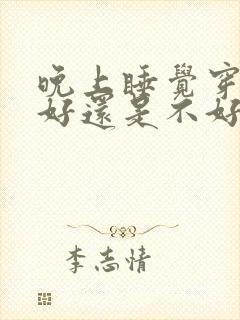 晚上睡覺穿
好還是不好
李志情